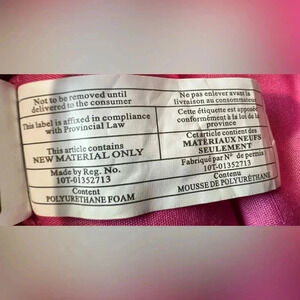 Not to be removed until
delivered to the consumer
This label is affixed in compliance
with Provincial Law
This article contains
NEW MATERIAL ONLY
Made by Reg. No.
10T-01352713
Content
POLYURETHANE FOAM
Ne pas enlever avant la
livraison au consommateur
Cette étiquette est apposée
conformément à la loi de la
province
Cet article contient des
MATÉRIAUX NEUFS
SEULEMENT
Fabriqué par N° de permis
10T-01352713
Contenu
MOUSSE DE POLYURÉTHANE